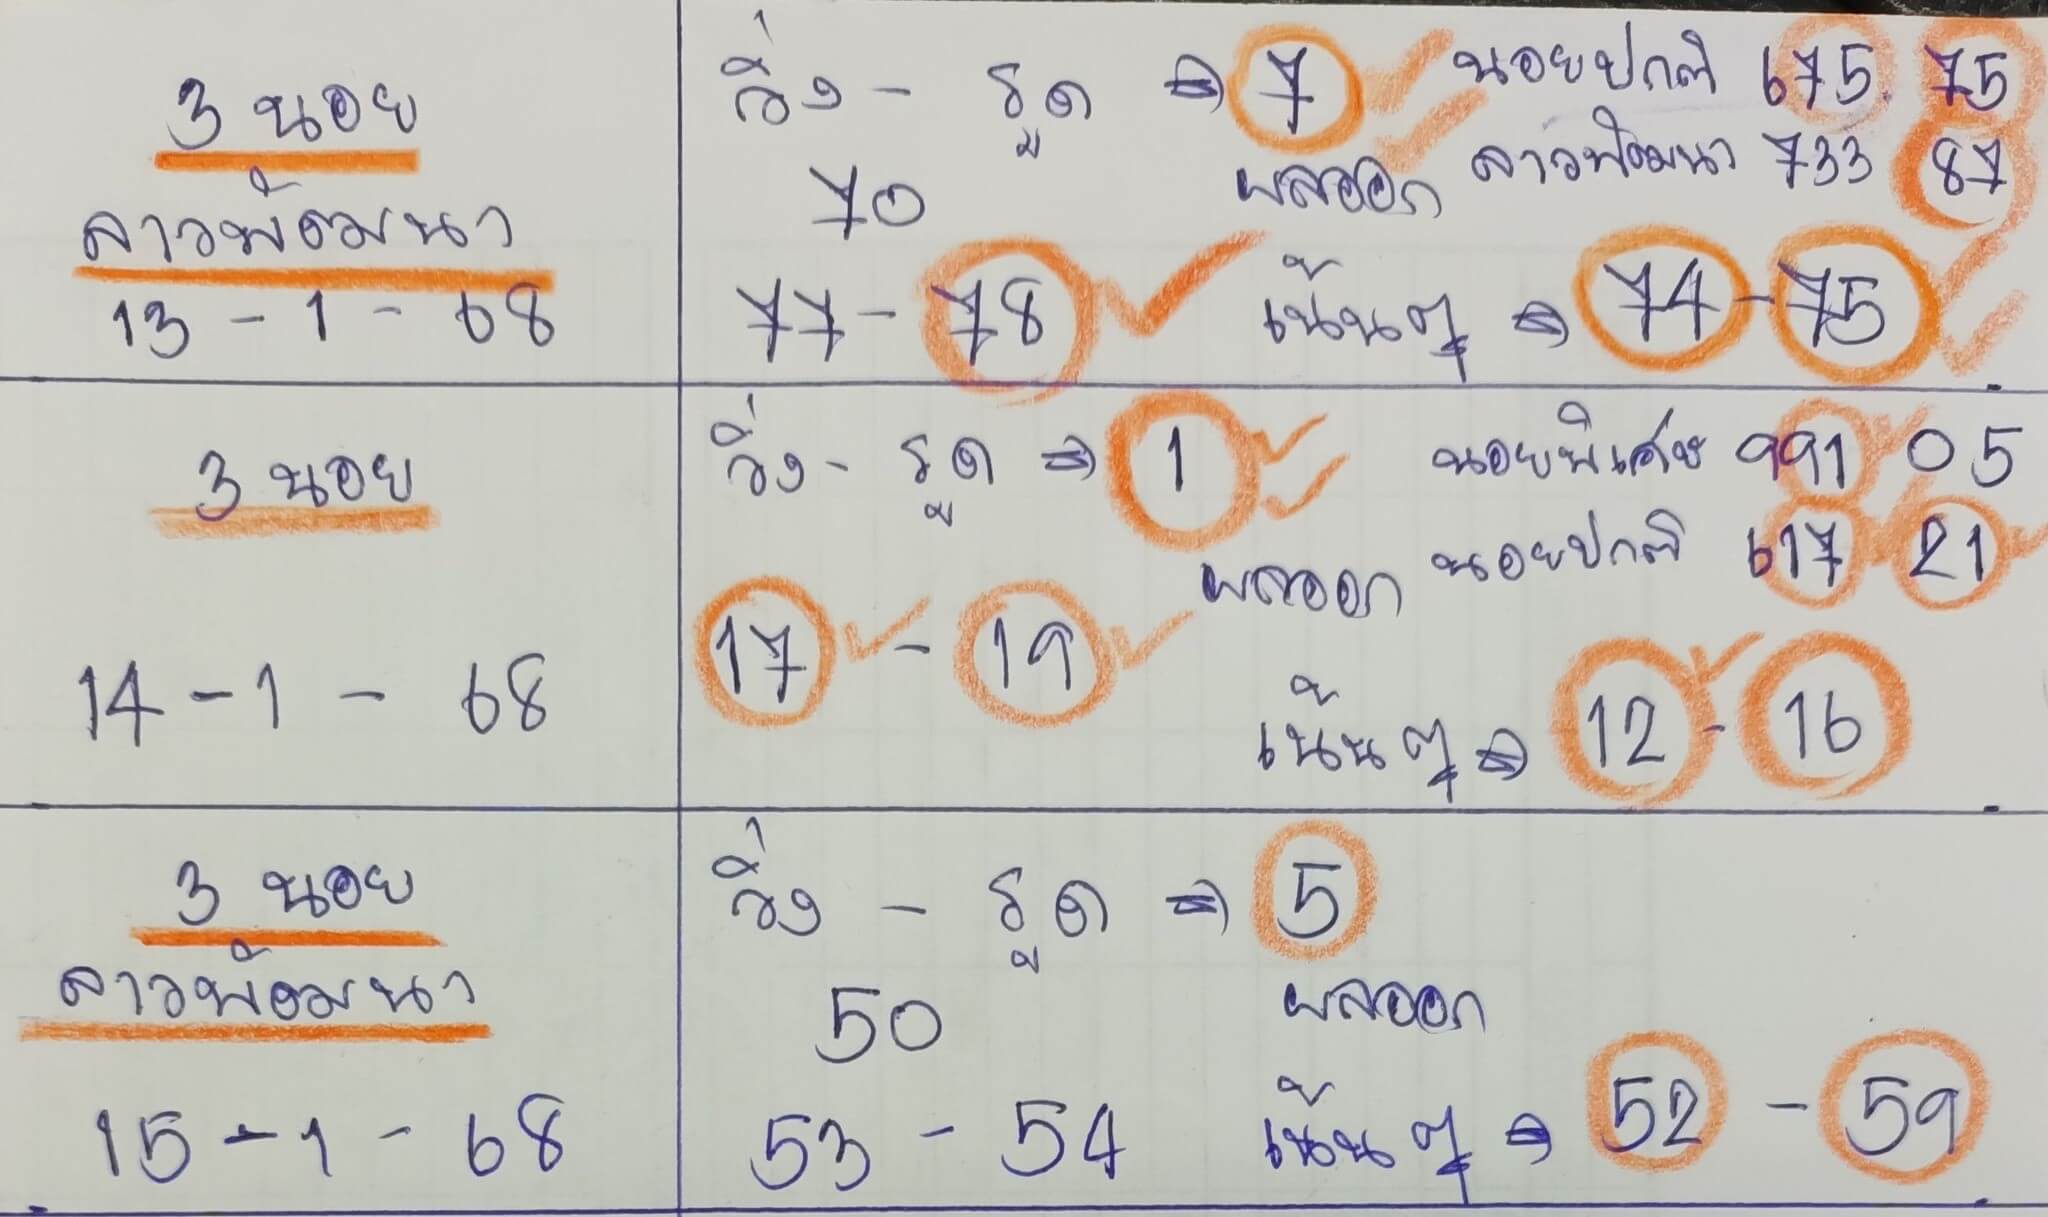 3 นอย
ลาวพัฒนา
13 - 1 - 68
วิ่ง - รูด ⇒ 7 นอยปกติ 675 75
70 ผลออก ลาวพัฒนา 733 87
77 - 78 เน้นๆ ⇒ 74 - 75
3 นอย
14 - 1 - 68
วิ่ง - รูด ⇒ 1 นอยพิเศษ 991 05
ผลออก นอยปกติ 617 21
17 - 19
เน้นๆ ⇒ 12 - 16
3 นอย
ลาวพัฒนา
15 - 1 - 68
วิ่ง - รูด ⇒ 5
50 ผลออก
53 - 54 เน้นๆ ⇒ 52 - 59